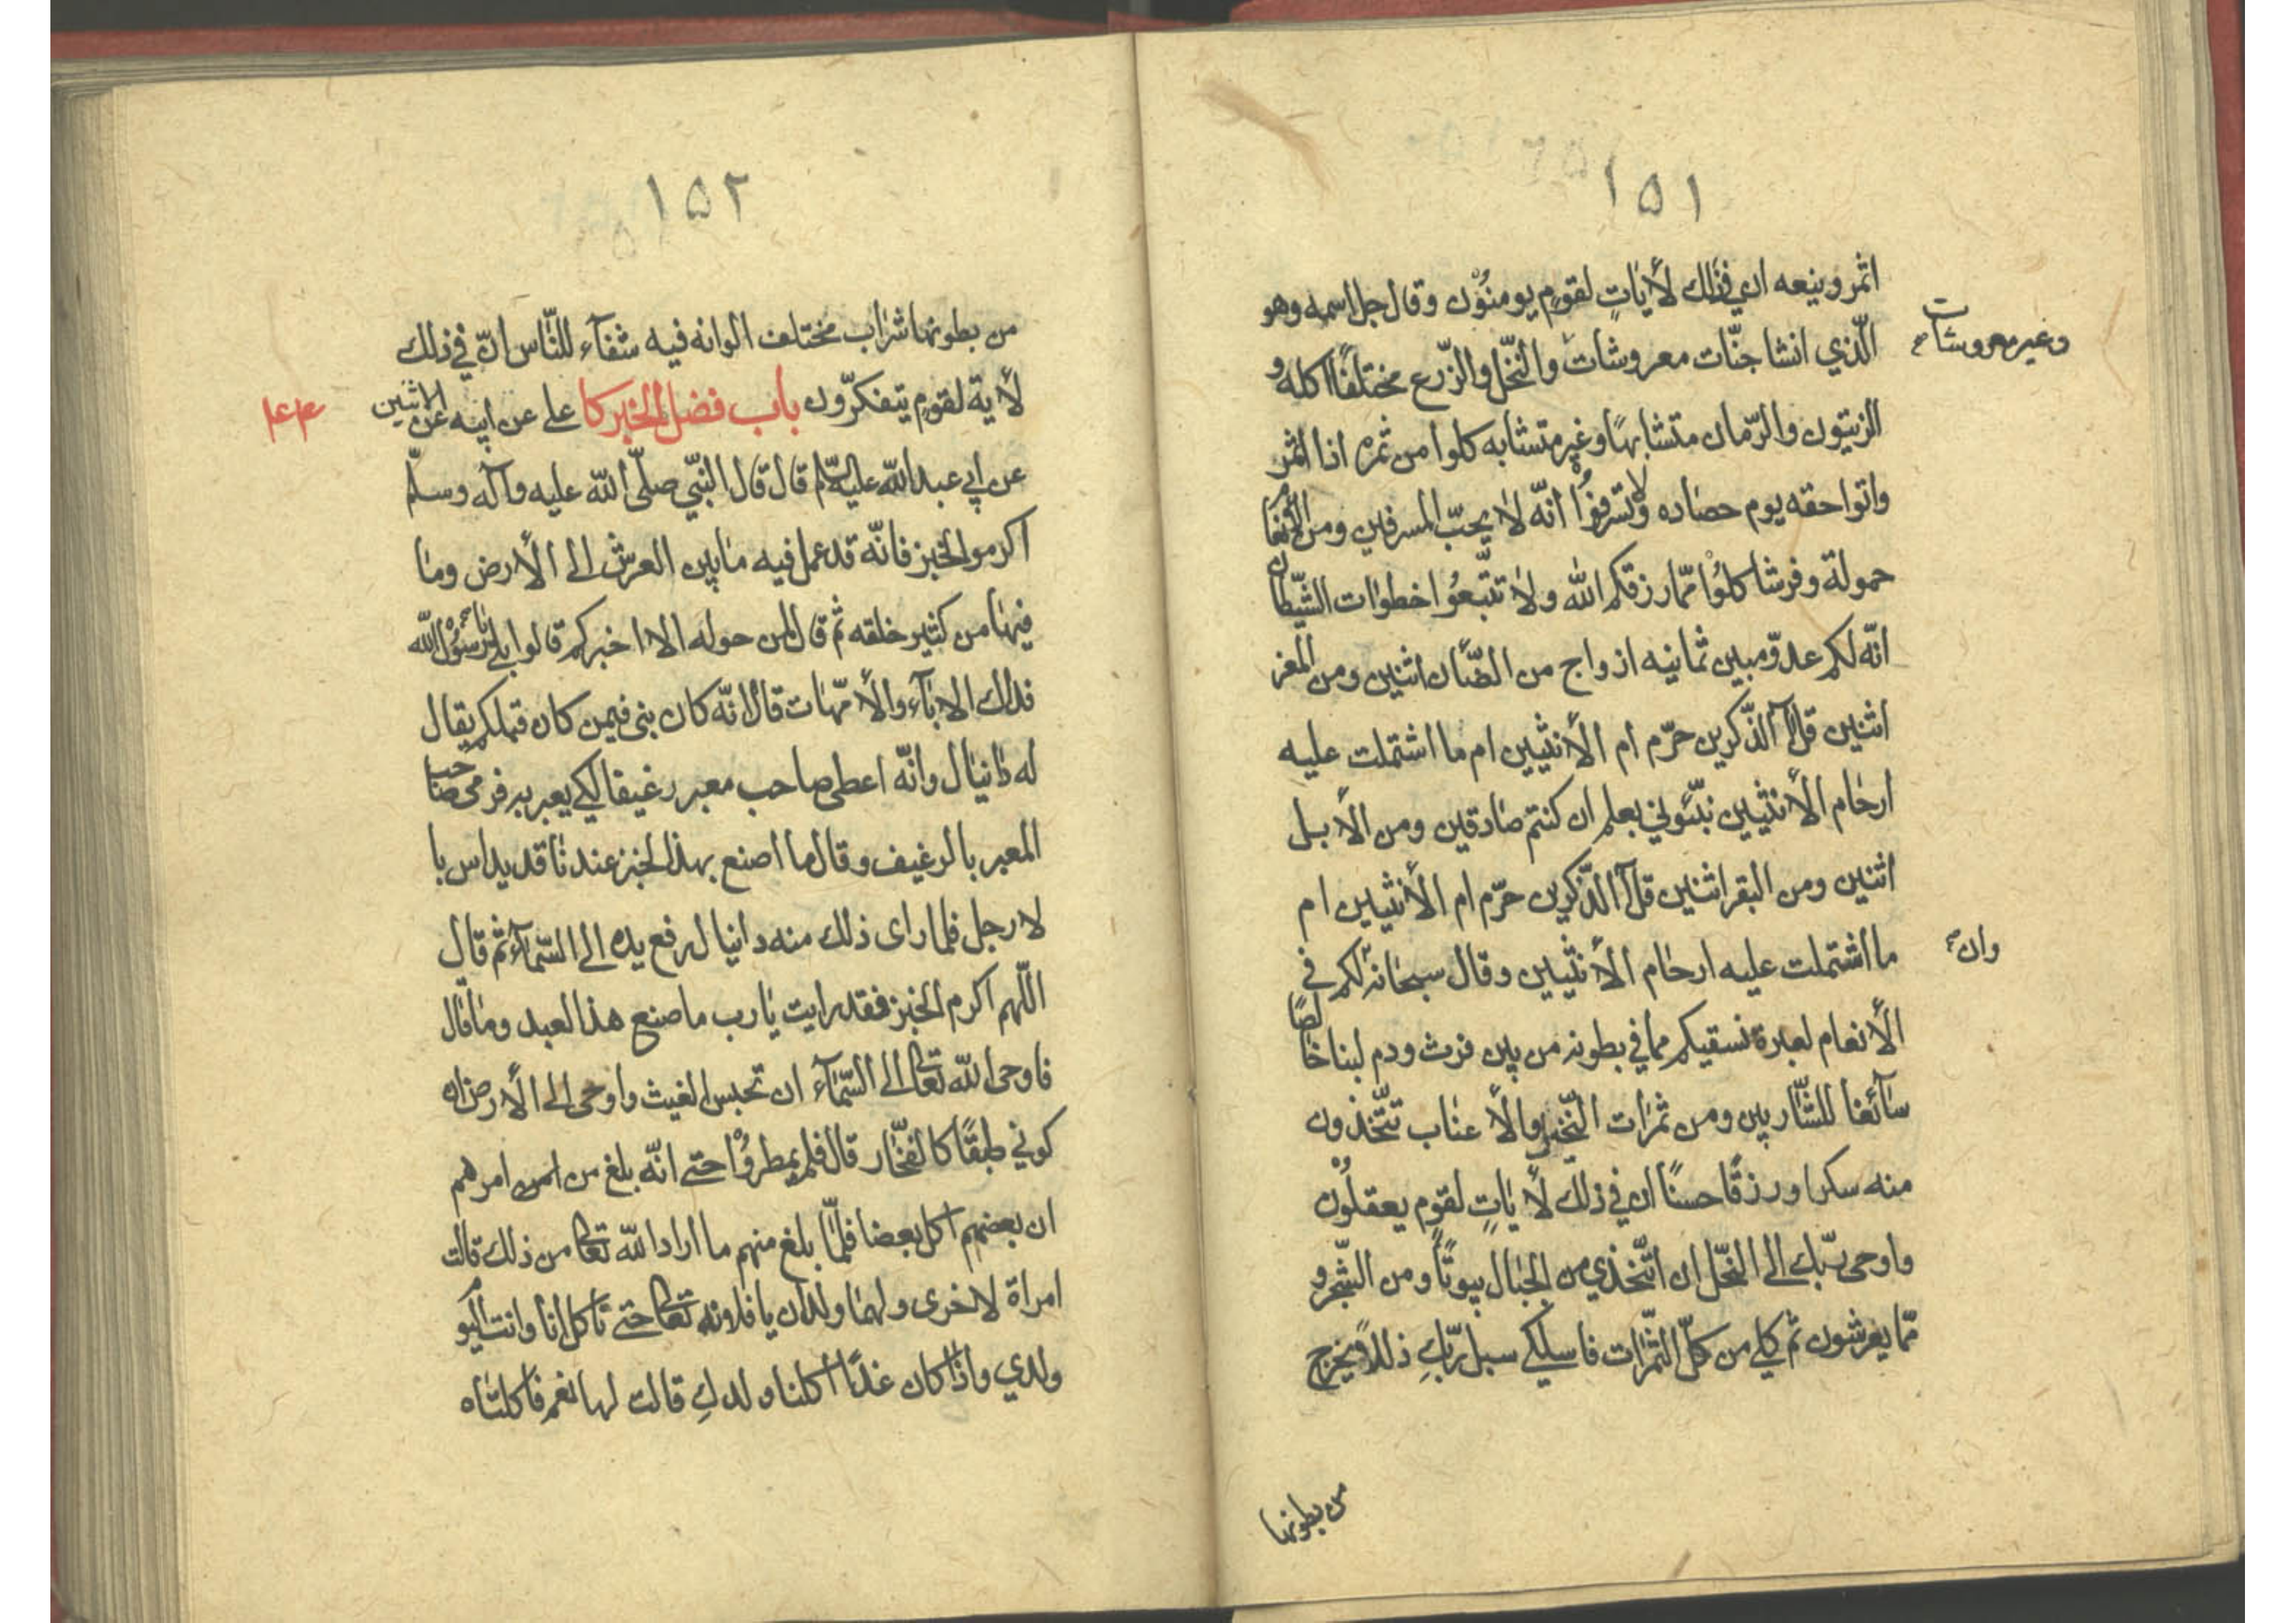 ١٥١
اثمر وينعه ان في ذلك لأيات لقوم يومنون وقال جل اسمه وهو
الّذي انشا جنّات معروشات والنّخل والزّرع مختلفًا اكله و
وغير معروشات
الزيتون والرّمان متشابهًا وغير متشابه كلوا من ثمره اذا اثمر
واتوا حقه يوم حصاده ولا تسرفوا انّه لا يحبّ المسرفين ومن الأنعام
حمولة وفرشا كلوا ممّا رزقكم الله ولا تتّبعوا خطوات الشّيطان
انّه لكم عدوّ مبين ثمانيه ازواج من الضّأن اثنين ومن المعز
اثنين قل آالذّكرين حرّم ام الأنثيين ام ما اشتملت عليه
ارحام الأنثيين نبّئوني بعلم ان كنتم صادقين ومن الأبل
اثنين ومن البقر اثنين قل آالذّكرين حرّم ام الأنثيين ام
ما اشتملت عليه ارحام الأنثيين وقال سبحانه لكم في
وان
الأنعام لعبرة نسقيكم مما في بطونه من بين فرث ودم لبنا خالصًا
سآئغا للشّاربين ومن ثمرات النّخيل والأعناب تتّخذون
منه سكرا ورزقًا حسنًا ان في ذلك لأيات لقوم يعقلون
واوحى ربّك الى النّحل ان اتّخذي من الجبال بيوتًا ومن الشّجر و
ممّا يعرشون ثم كلي من كلّ الثّمرات فاسلكي سبل ربّكِ ذللا يخرج
من بطونها
١٥٢
من بطونها شراب مختلف الوانه فيه شفآء للنّاس انّ في ذلك
لأية لقوم يتفكرّون باب فضل الخبز كا علي عن ابيه عن الاثنين
٤٤
عن ابي عبد الله عليه السّلم قال قال النّبي صلّى الله عليه وآله وسلّم
اكرموا الخبز فانّه قد عمل فيه ما بين العرش الى الأرض وما
فيها من كثير خلقه ثم قال لمن حوله الا اخبركم قالوا بلى يا رسول الله
فداك الاباء والأمّهات قال انّه كان نبي فيمن كان قبلكم يقال
له دانيال وانّه اعطى صاحب معبر رغيفا لكي يعبر به فرمى صاحب
المعبر بالرغيف وقال ما اصنع بهذا الخبز عندنا قد يداس با
لارجل فلما راى ذلك منه دانيال رفع يده الى السّمآء ثم قال
اللّهم اكرم الخبز فقد رايت يا رب ما صنع هذا العبد وما قال
فاوحى الله تعالى الى السّمآء ان تحبس الغيث واوحى الى الأرض ان
كوني طبقًا كالفخّار قال فلم يمطروا حتى انّه بلغ من امرهم
ان بعضهم اكل بعضا فلمّا بلغ منهم ما اراد الله تعالى من ذلك قالت
امراة لاخرى ولهما ولدان يا فلانه تعالى حتى ناكل انا وانت اليوم
ولدي واذا كان غدًا اكلنا ولدكِ قالت لها نعم فاكلتاه